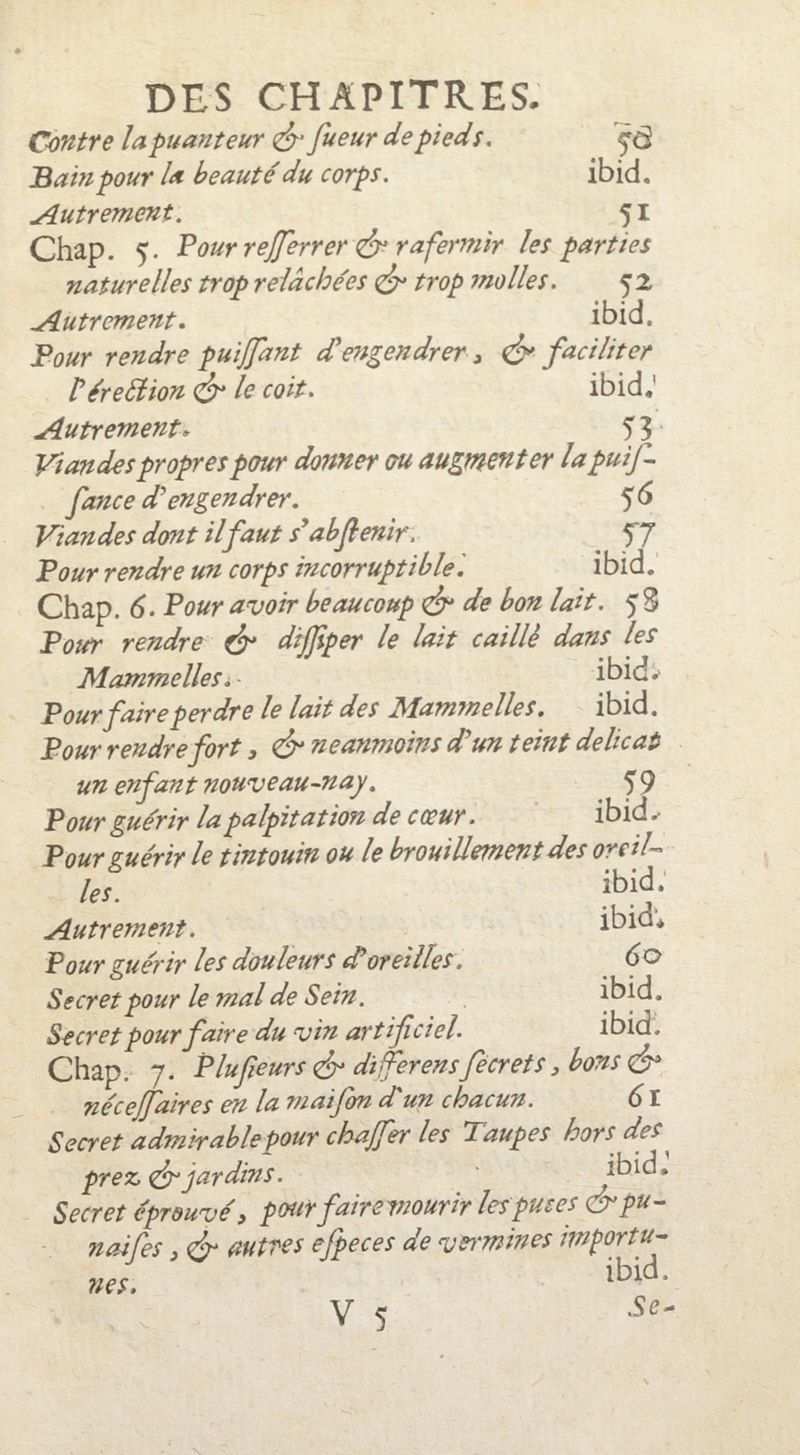 DES CHAPITRES.
Contre la puanteur & ſueur de pieds. 50
Bain pour la beauté du corps. ibid.
Autrement. 51
Chap. 5. Pour reſſerrer & rafermir les parties
naturelles trop relâchées & trop molles. 52
Autrement. ibid.
Pour rendre puiſſant d'engendrer, & faciliter
l'érection & le coit. ibid.
Autrement. 53
Viandes propres pour donner ou augmenter la puiſ-
ſance d'engendrer. 56
Viandes dont il faut s'abſtenir. 57
Pour rendre un corps incorruptible. ibid.
Chap. 6. Pour avoir beaucoup & de bon lait. 58
Pour rendre & diſſiper le lait caillé dans les
Mammelles. ibid.
Pour faire perdre le lait des Mammelles. ibid.
Pour rendre fort, & neanmoins d'un teint delicat
un enfant nouveau-nay. 59
Pour guérir la palpitation de cœur. ibid.
Pour guérir le tintouin ou le brouillement des oreil-
les. ibid.
Autrement. ibid.
Pour guérir les douleurs d'oreilles. 60
Secret pour le mal de Sein. ibid.
Secret pour faire du vin artificiel. ibid.
Chap. 7. Pluſieurs & differens ſecrets, bons &
néceſſaires en la maiſon d'un chacun. 61
Secret admirable pour chaſſer les Taupes hors des
prez & jardins. ibid.
Secret éprouvé, pour faire mourir les puces & pu-
naiſes, & autres eſpeces de vermines importu-
nes. ibid.
V 5 Se-